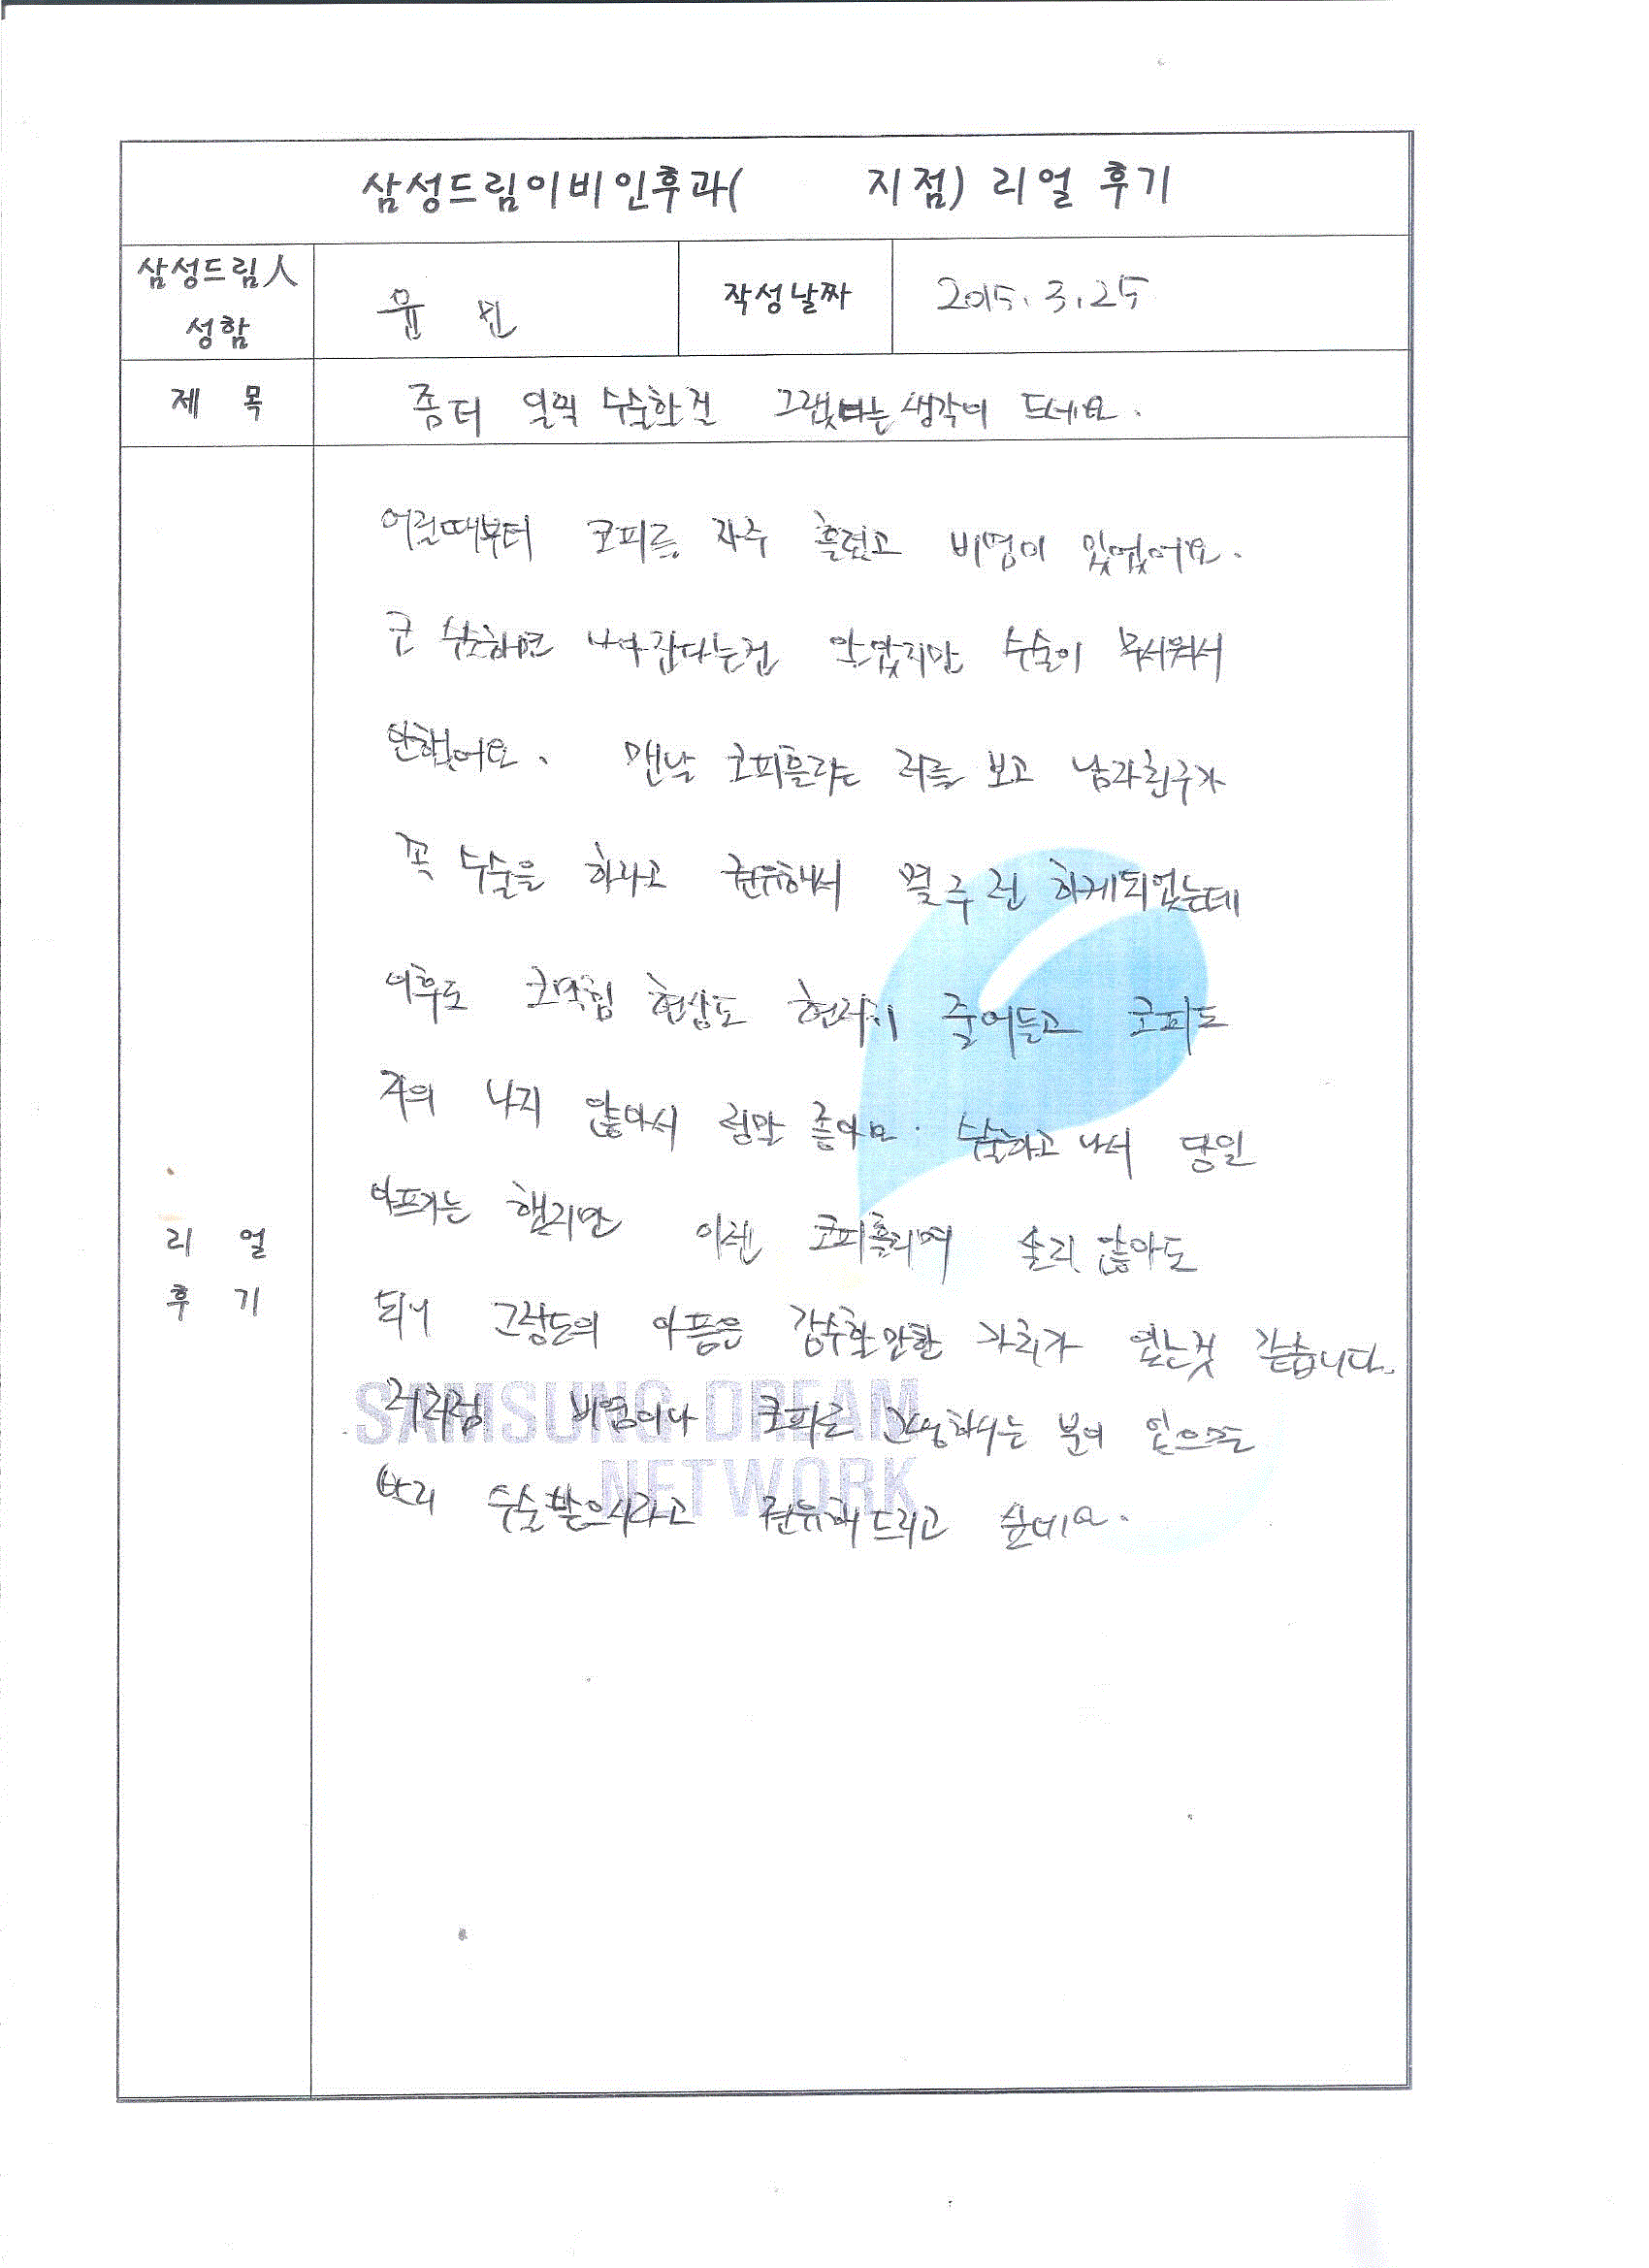 삼성드림이비인후과( 지점) 리얼 후기
삼성드림人
성함
윤 빈
작성날짜
2015. 3. 25
제 목
좀더 일찍 수술할걸 그랬다는 생각이 드네요.
어릴때부터 코피를 자주 흘렸고 비염이 있었어요.
코 수술하면 나아진다는건 알았지만 수술이 무서워서
안했어요. 맨날 코피흘리는 저를 보고 남자친구가
꼭 수술을 하라고 권유해서 몇주전 하게되었는데
이후로 코막힘 현상도 현저히 줄어들고 코피도
거의 나지 않아서 정말 좋아요. 수술하고 나서 당일
아프기는 했지만 이젠 코피흘리며 살지 않아도
되니 그정도의 아픔은 감수할만한 가치가 있는것 같습니다.
저처럼 비염이나 코피로 고생하시는 분이 있으면
빨리 수술받으시라고 권유해드리고 싶네요.
리 얼
후 기
SAMSUNG DREAM
NETWORK